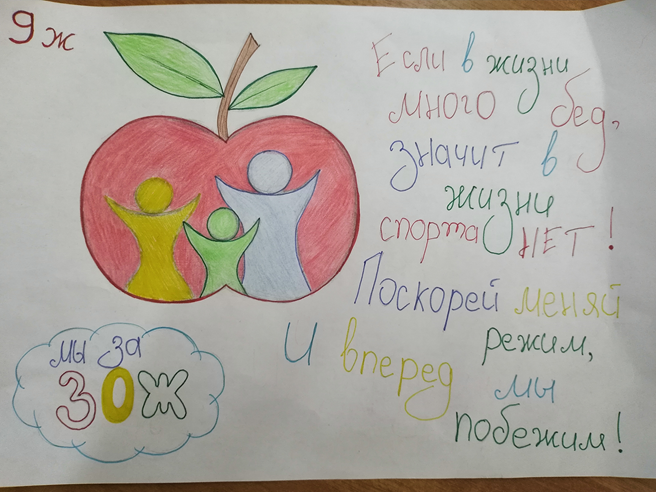 9 ж
Если в жизни
много бед,
значит в
жизни
спорта НЕТ!
Поскорей меняй
режим,
И вперед мы
побежим!
мы за
ЗОЖ